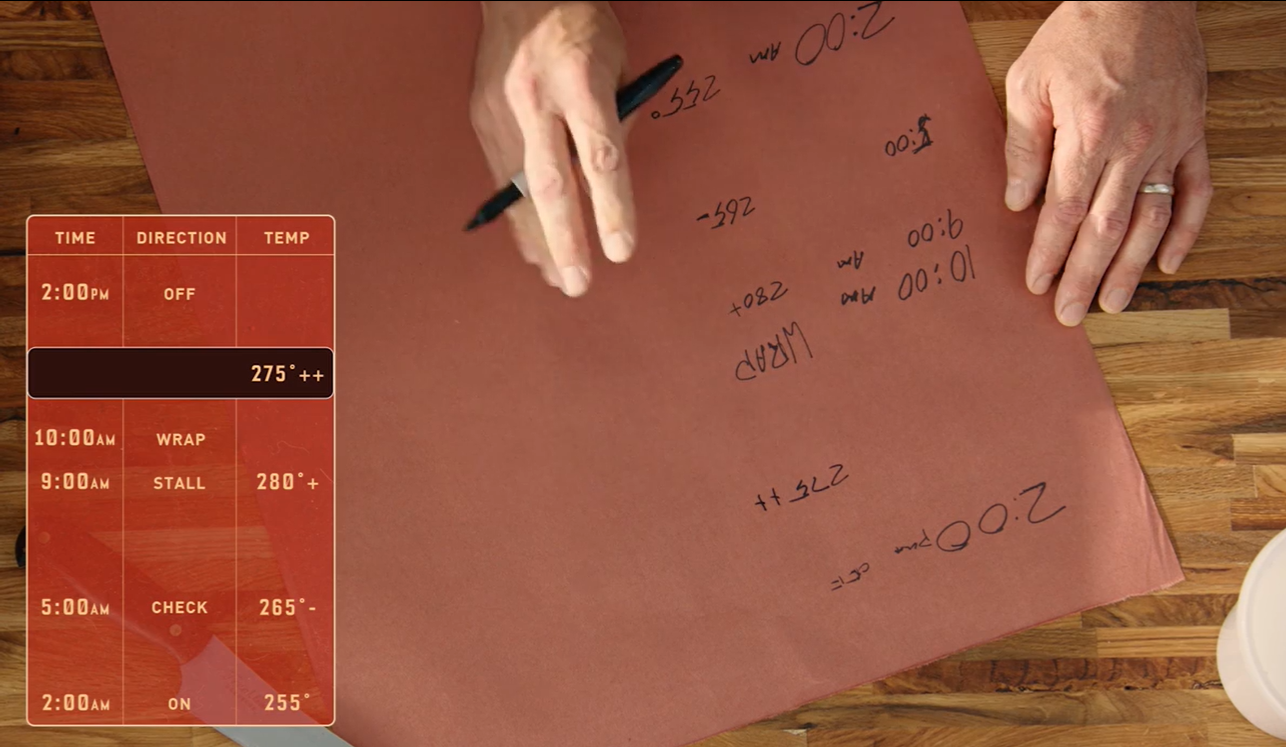 TIME DIRECTION TEMP
2:00PM OFF
275°++
10:00AM WRAP
9:00AM STALL 280°+
5:00AM CHECK 265°-
2:00AM ON 255°
2:00pm OFF
275 ++
10:00 AM WRAP
9:00 AM 280+
5:00 265-
2:00 AM 255°